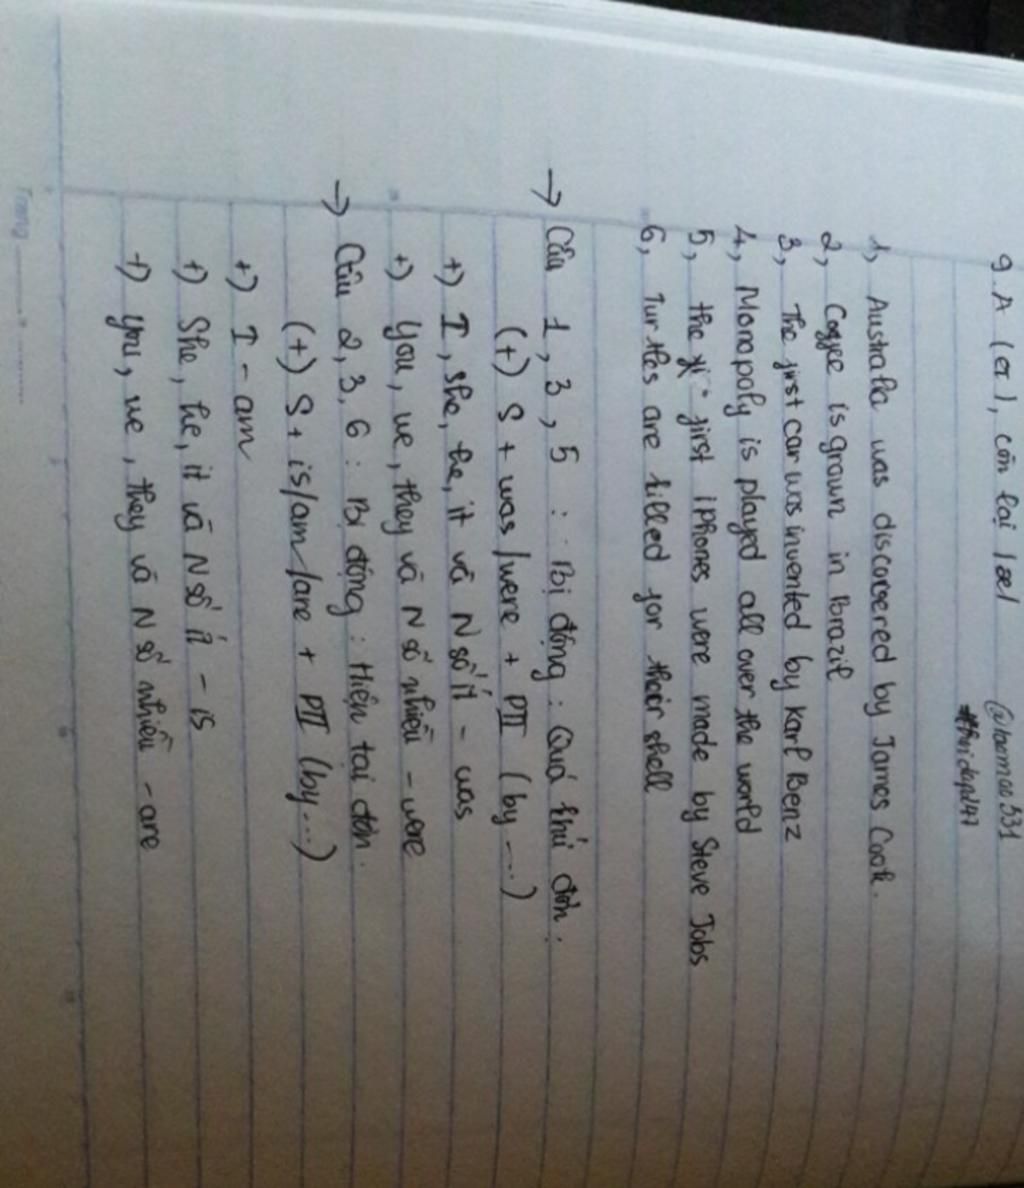 9. A (eɪ), còn lại /æ/ @hoomac531
1, Australia was discorered by James Cook.
2, Coffee is grawn in Brazil
3, The first car was invented by Karl Benz
4, Monopoly is played all over the world
5, the first iphones were made by Steve Jobs
6, Turtles are killed for their shell
→ Câu 1, 3, 5 : Bị động : Quá khứ đơn.
(+) S + was/were + PII (by ...)
+) I, she, he, it và N số ít - was
+) You, we, they và N số nhiều - were
→ Câu 2, 3, 6 : Bị động : Hiện tại đơn.
(+) S + is/am/are + PII (by ...)
+) I - am
+) She, he, it và N số ít - is
+) You, we, they và N số nhiều - are
Trang